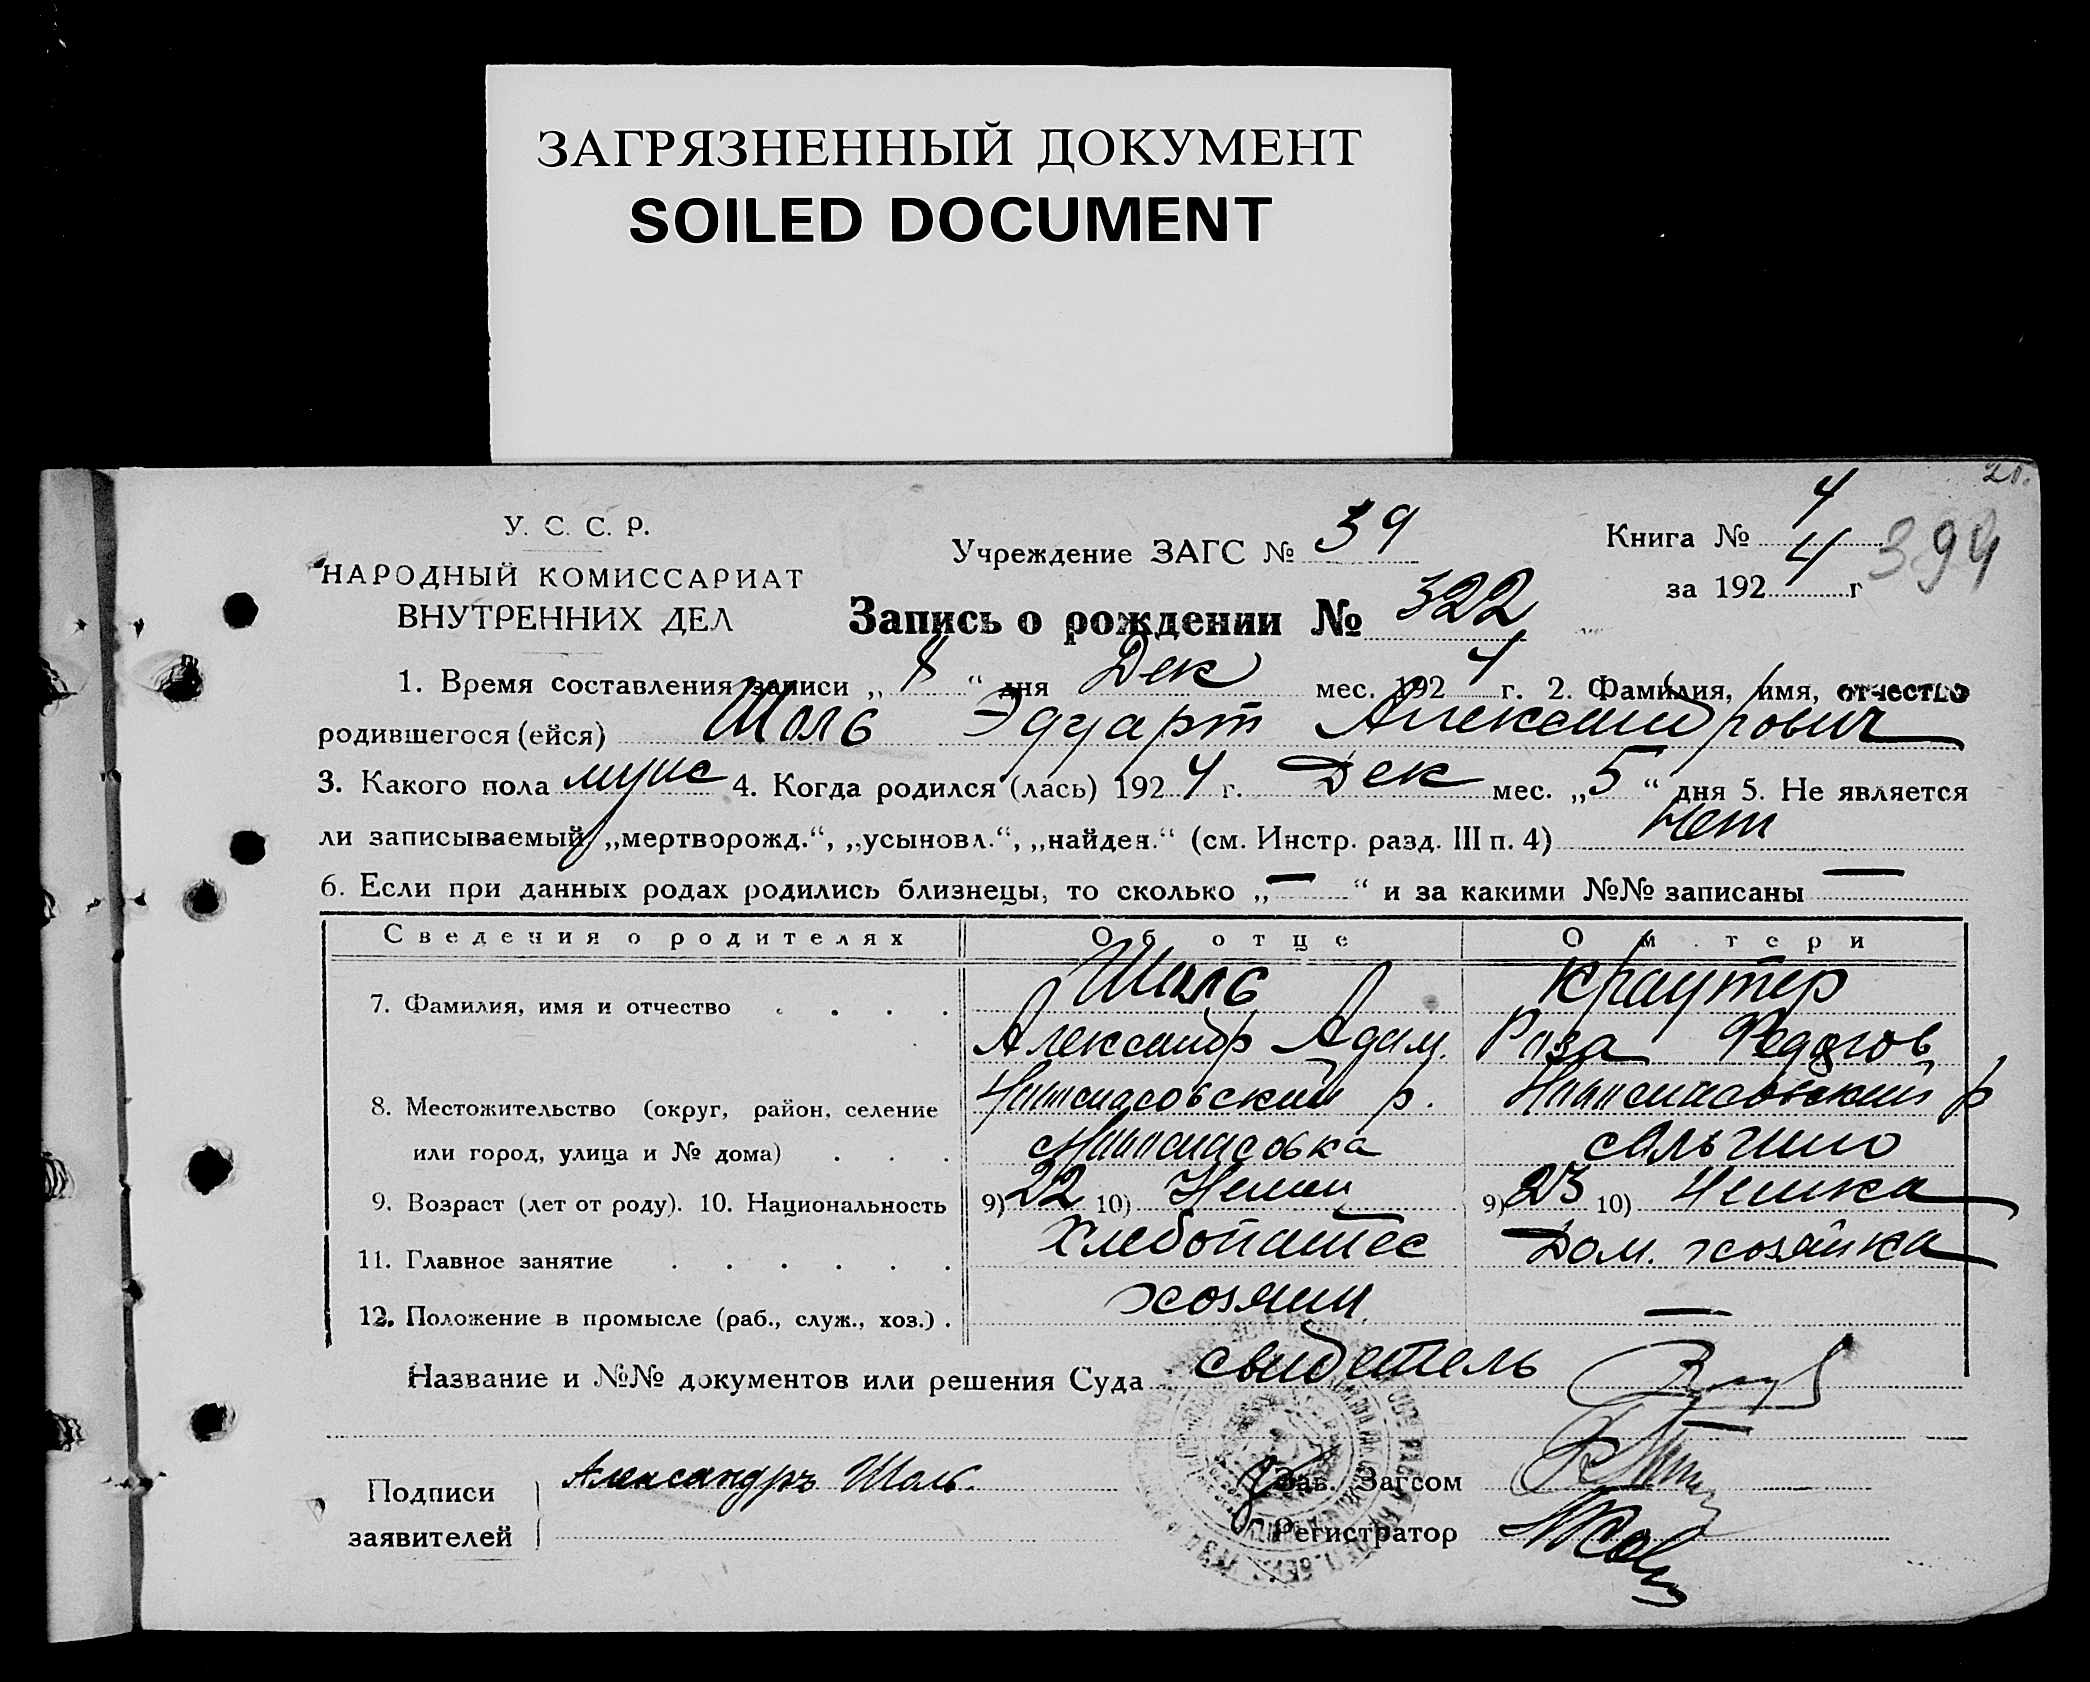 ЗАГРЯЗНЕННЫЙ ДОКУМЕНТ
SOILED DOCUMENT
У. С. С. Р.
НАРОДНЫЙ КОМИССАРИАТ
ВНУТРЕННИХ ДЕЛ
Учреждение ЗАГС № 39
Книга № 4
за 1924 г 394
Запись о рождении № 322
1. Время составления записи „ 8 “ дня Дек мес. 1924 г. 2. Фамилия, имя, отчество
родившегося (ейся) Шоль Эдуарт Александрович
3. Какого пола муж 4. Когда родился (лась) 1924 г. Дек мес. „ 5 “ дня 5. Не является
ли записываемый „мертворожд.“, „усыновл.“, „найден.“ (см. Инстр. разд. III п. 4) Нет
6. Если при данных родах родились близнецы, то сколько „ — “ и за какими №№ записаны —
Сведения о родителях Об отце О м.тери
7. Фамилия, имя и отчество . . . . Шоль Краутер
Александр Адам. Роза
8. Местожительство (округ, район, селение р. р
или город, улица и № дома) . . .
9. Возраст (лет от роду). 10. Национальность 9) 22 10) Немец 9) 23 10) Немка
11. Главное занятие . . . . . . Хлебопашес Дом. хозяйка
12. Положение в промысле (раб., служ., хоз.) . хозяин —
Название и №№ документов или решения Суда свидетель
Подписи Александръ Шоль. Зав. Загсом
заявителей Регистратор